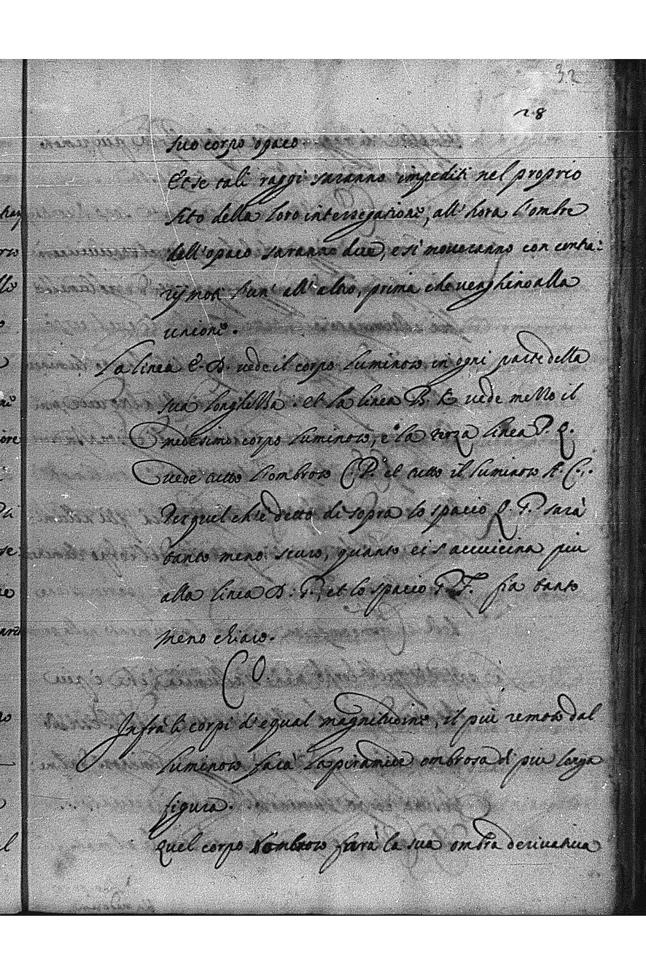 32
28
suo corpo opaco
Et se tali raggi saranno impediti nel proprio
sito della loro intersegatione, all'hora l'ombre
dell'opaco saranno due, e si moveranno con contra:
rij moti l'un' all'altro, prima che venghino alla
unione.
La linea A. B. vede il corpo luminoso in ogni parte della
sua longhezza. et la linea B. vede mezzo il
medesimo corpo luminoso, e la terza linea P. Q.
vede tutto l'ombroso C. P. et tutto il luminoso A. C.
Per quel ch'è detto di sopra lo spacio Q. P. sarà
tanto meno scuro, quanto ei s'avvicina più
alla linea D. P., et lo spacio P. F. fia tanto
meno chiaro.
Infra li corpi d'equal magnitudine, il più remoto dal
luminoso farà la piramide ombrosa di più larga
figura.
Quel corpo ombroso farà la sua ombra derivativa